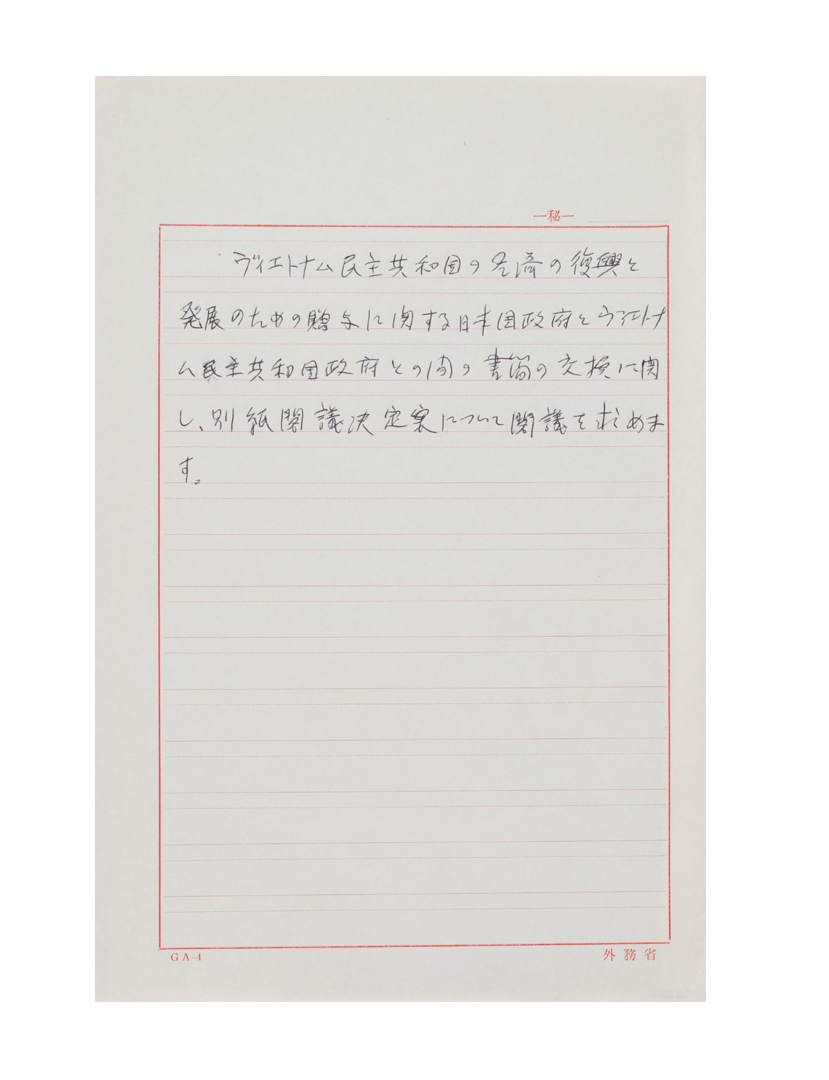 秘
ヴィエトナム民主共和国の経済の復興と
発展のための贈与に関する日本国政府とヴィエトナ
ム民主共和国政府との間の書簡の交換に関
し、別紙閣議決定案について閣議を求めま
す。
GA-4
外務省